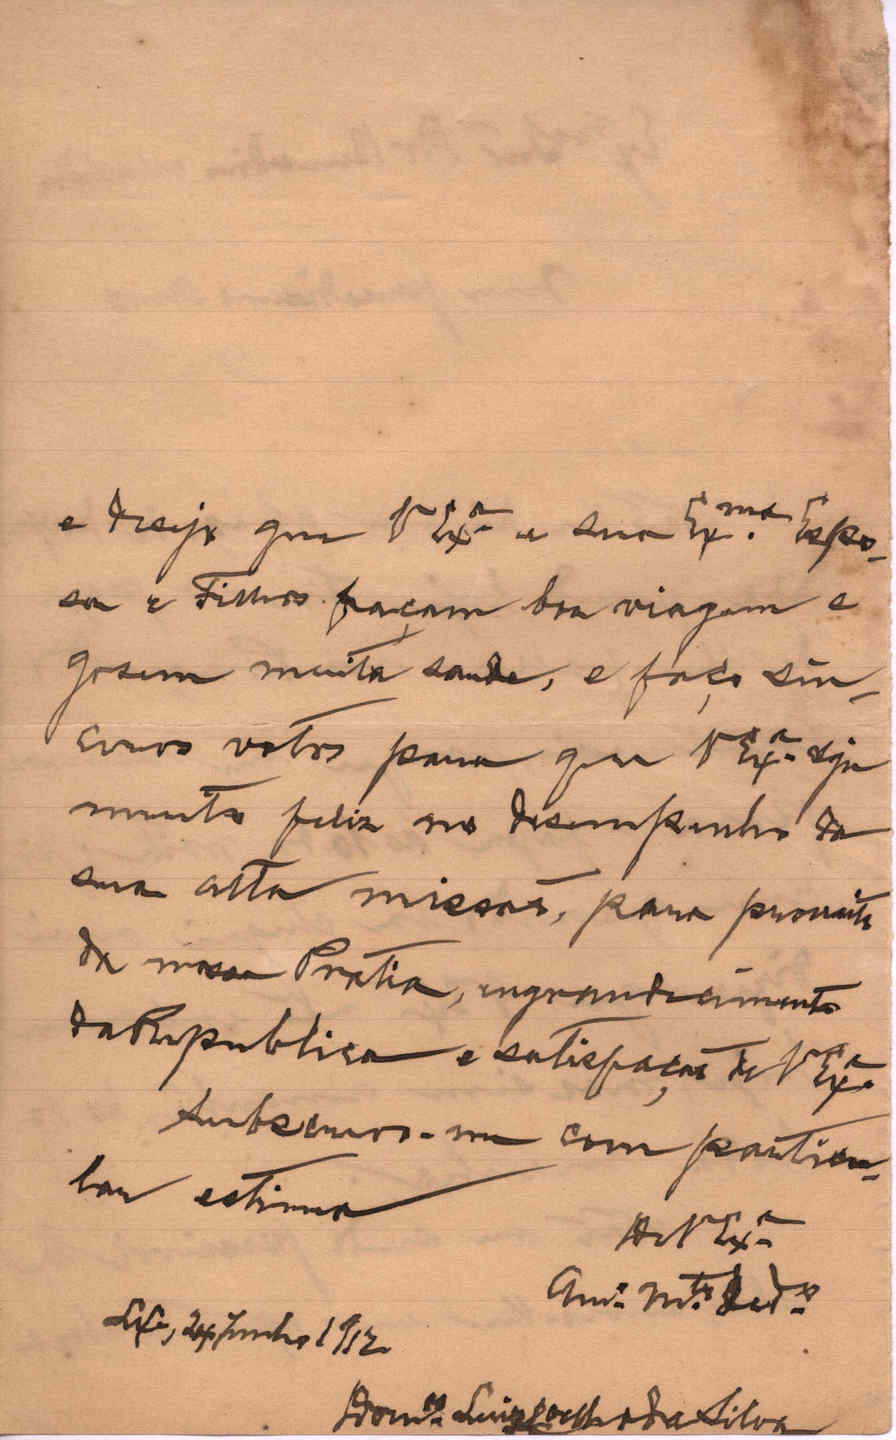 e desejo que V Exª e sua Exma. Espo-
sa e Filhos façam boa viagem e
gosem muita saude, e faço sin-
ceros votos para que V Exª seja
muito feliz no desempenho da
sua alta missão, para proveito
da nossa Pratia, engrandecimento
da Republica e satisfação de V Exª.
Subscrevo-me com particu-
lar estima
De V Exª
Amº. Mto. Dedº.
Lxª, 24 Junho 1912
Domos. Luiz Coelho da Silva